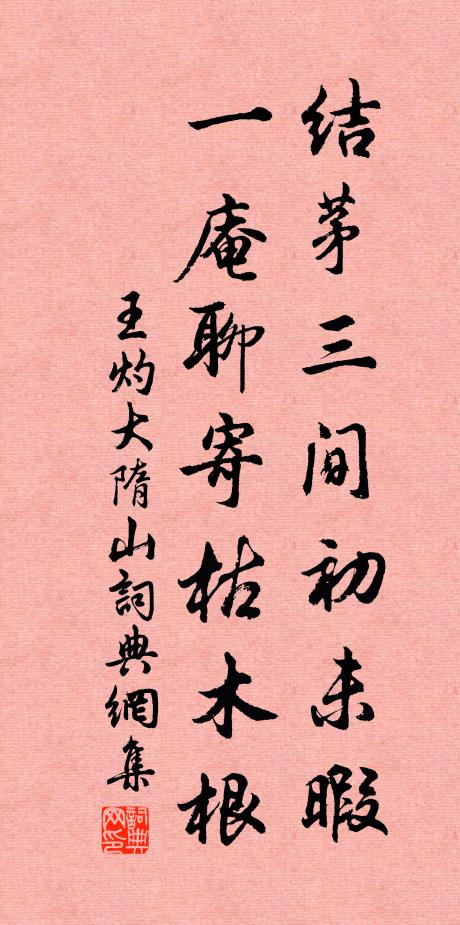 结茅三间初未暇
一庵聊寄枯木根
王灼大隋山詞典網集
詞典网印